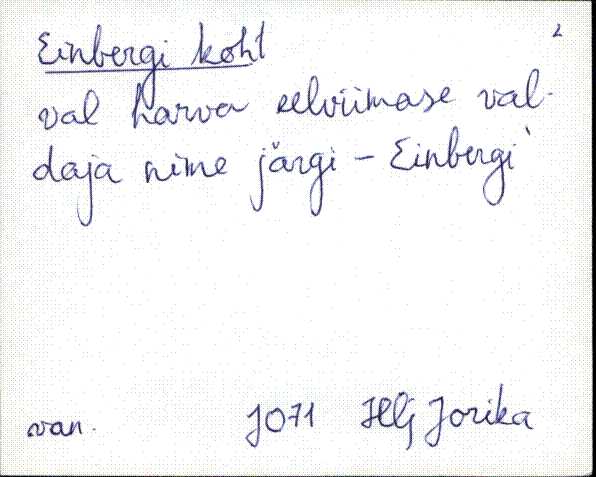 2
Einbergi koht
val harva eelviimase val-
daja nime järgi – Einbergi`
van. J071 Hlj Jorika